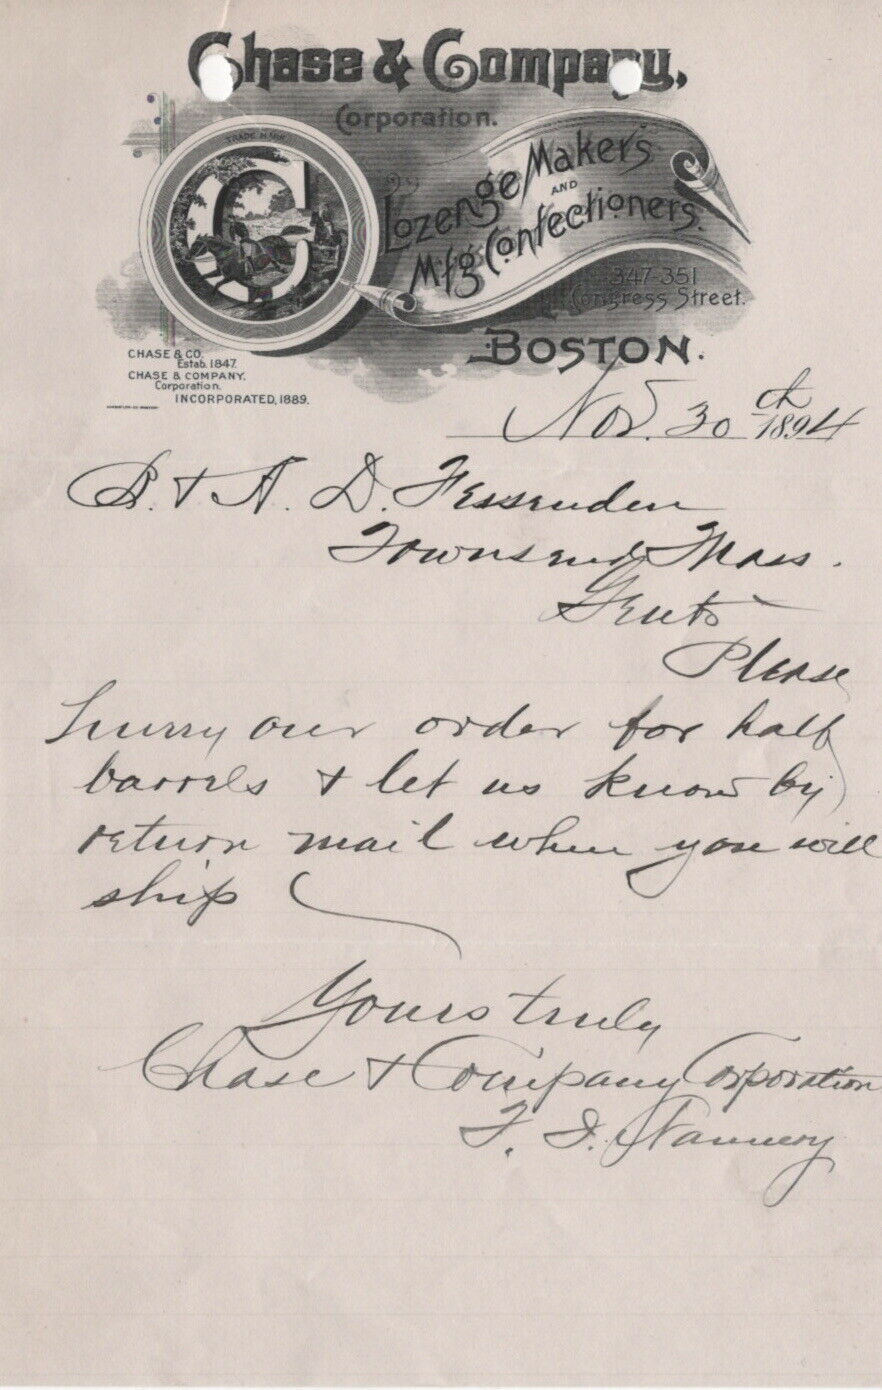 Chase & Company,
Corporation.
TRADE MARK
Lozenge Makers
AND
Mfg Confectioners.
347-351
Congress Street.
BOSTON.
CHASE & CO.
Estab. 1847.
CHASE & COMPANY.
Corporation.
INCORPORATED, 1889.
Nov. 30th 1894
B. & A. D. Fessenden
Townsend Mass.
Gents
Please
hurry our order for half
barrels & let us know by
return mail when you will
ship
Yours truly
Chase & Company Corporation